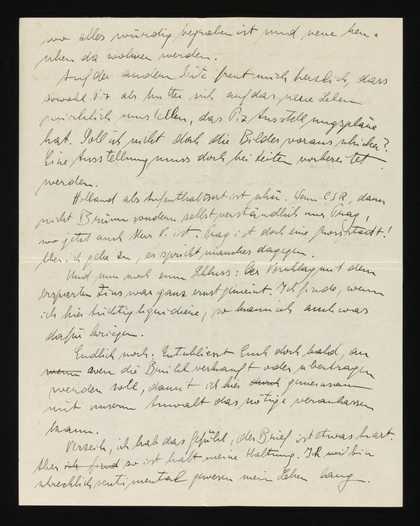 wo alles würdig begraben ist und neue Men-
schen da wohnen werden.
Auf der andern Seite freut mich herzlich, dass
sowohl Piz als Mutter sich auf das neue Leben
wirklich umstellen, dass Piz Ausstellungspläne
hat. Soll ich nicht doch die Bilder vorausschicken?
Eine Ausstellung muss doch bei Zeiten vorbereitet
werden.
Holland als Aufenthaltsort ist schön. Wenn CSR, dann
nicht Brünn sondern selbstverständlich nur Prag,
wo jetzt auch Herr P. ist. Prag ist doch eine Grossstadt!
Aber ich gebe zu, es spricht manches dagegen.
Und nun noch zum Schluss: Der Vorschlag mit dem
ersparten Zins war ganz ernst gemeint. Ich finde, wenn
ich hier tüchtig liquidiere, so kann ich auch was
dafür kriegen.
Endlich noch. Entschliesst Euch doch bald, an
wen die Bmühl verkauft oder übertragen
werden soll, damit ich hier gemeinsam
mit unserm Anwalt das nötige veranlassen
kann.
Verzeih, ich hab das Gefühl, der Brief ist etwas hart.
Aber so ist halt meine Haltung. Ich weiss
schrecklich sentimental gewesen mein Leben lang.